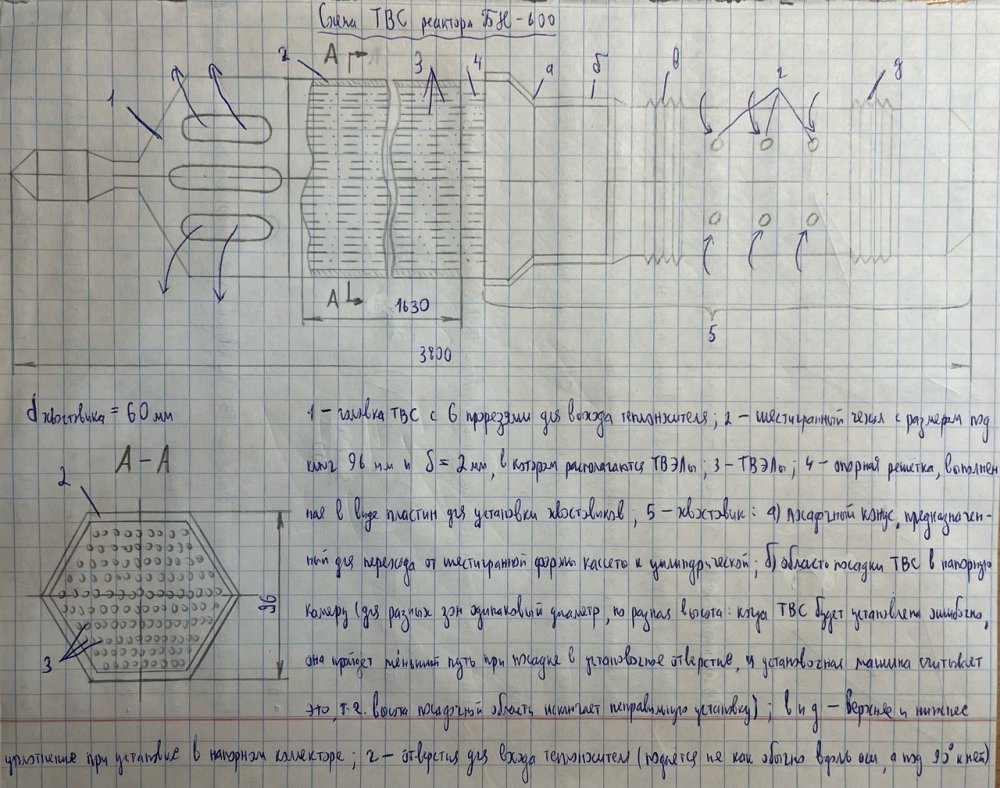 Схема ТВС реактора БН-600
А А
1 2 3 4 а б в г д
А
1630
5
3800
d хвостовика = 60 мм
А-А
2
96
3
1 - головка ТВС с 6 прорезями для выхода теплоносителя; 2 - шестигранный чехол с размером под
ключ 96 мм и δ = 2 мм, в котором располагаются ТВЭЛы; 3 - ТВЭЛы; 4 - опорная решётка, выполнен-
ная в виде пластин для установки хвостовиков; 5 - хвостовик: а) посадочный конус, предназначен-
ный для перехода от шестигранной формы кассеты к цилиндрической; б) область посадки ТВС в напорную
камеру (для разных зон одинаковый диаметр, но разная высота: когда ТВС будет установлена ошибочно,
она пройдёт меньший путь при посадке в установочное отверстие, и установочная машина считывает
это, т.е. высота посадочной области исключает неправильную установку); в и д - верхнее и нижнее
уплотнение при установке в напорном коллекторе; г - отверстия для входа теплоносителя (подаётся не как обычно вдоль оси, а под 90° к ней)